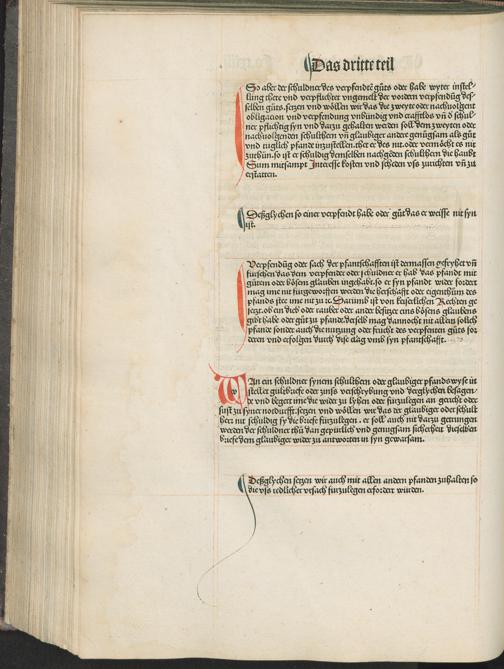 Das dritte teil
So aber der schuldner des verpfendtē gůts oder habe wyter instel-
lung thete vnd verpflichtet vngemelt der vordern verpfendūg des-
selben gůts. setzen vnd wöllen wir das die zweyte oder nachuolgent
obligacion vnd verpfendung vnbündig vnd crafftlos vn̄ d' schul-
ner pflichtig syn vnd darzu gehalten werden soll dem zweyten oder
nachuolgenden schulthern vn̄ glaubiger ander genůgsam als gůt
vnd tuglich pfande inzustellen. thet er des nit. oder vermöcht es nit
zuthůn. so ist er schuldig demselben nachgeenden schulthern die haubt
Sum mitsampt Interesse kosten vnd scheden vß zurichten vn̄ zu
erstatten.
Deßglychen so einer verpfendt habe oder gůt das er weisst nit syn
ist.
Verpfendūg oder sach der pfantschafften ist dermassen gefryhet vn̄
fursehen das dem verpfender oder schuldner er hab das pfande mit
gůtem oder bösem glauben ingehabt. so er syn pfande wider fordert
mag ime nit furgeworffen werden die herschafft oder eigenthum des
pfands stee ime nit zu ⁊c. Darumb ist von keiserlichen Rechten ge
setzt. ob ein dieb oder rauber oder ander besitzer eins bösens glaubens
gibt habe oder gůt zu pfande. derselb mag dannocht nit allein solich
pfande sonder auch die nutzung oder frücht des verpfenten gůts for
deren vnd erfolgen durch dise clag vmb syn pfantschafft.
WAn ein schuldner synem schulthern oder glaubiger pfands wyse in
stellet gültbriefe oder zinß verschrybung vnd derglychen besagen-
de vnd begert ime die wider zu lyhen oder fürzulegen an gericht oder
sunst zu syner notdurfft. setzen vnd wöllen wir das der glaubiger oder schult
herr nit schuldig sy die briefe fürzulegen. er soll auch nit darzu getrungen
werden der schuldner thů dan gepürlich vnd genugsam sicherheit dieselben
briefe dem glaubiger wider zu antworten in syn gewarsam.
Deßglychen setzen wir auch mit allen andern pfanden zuhalten so
die vß redlicher vrsach fürzulegen erfordert würden.